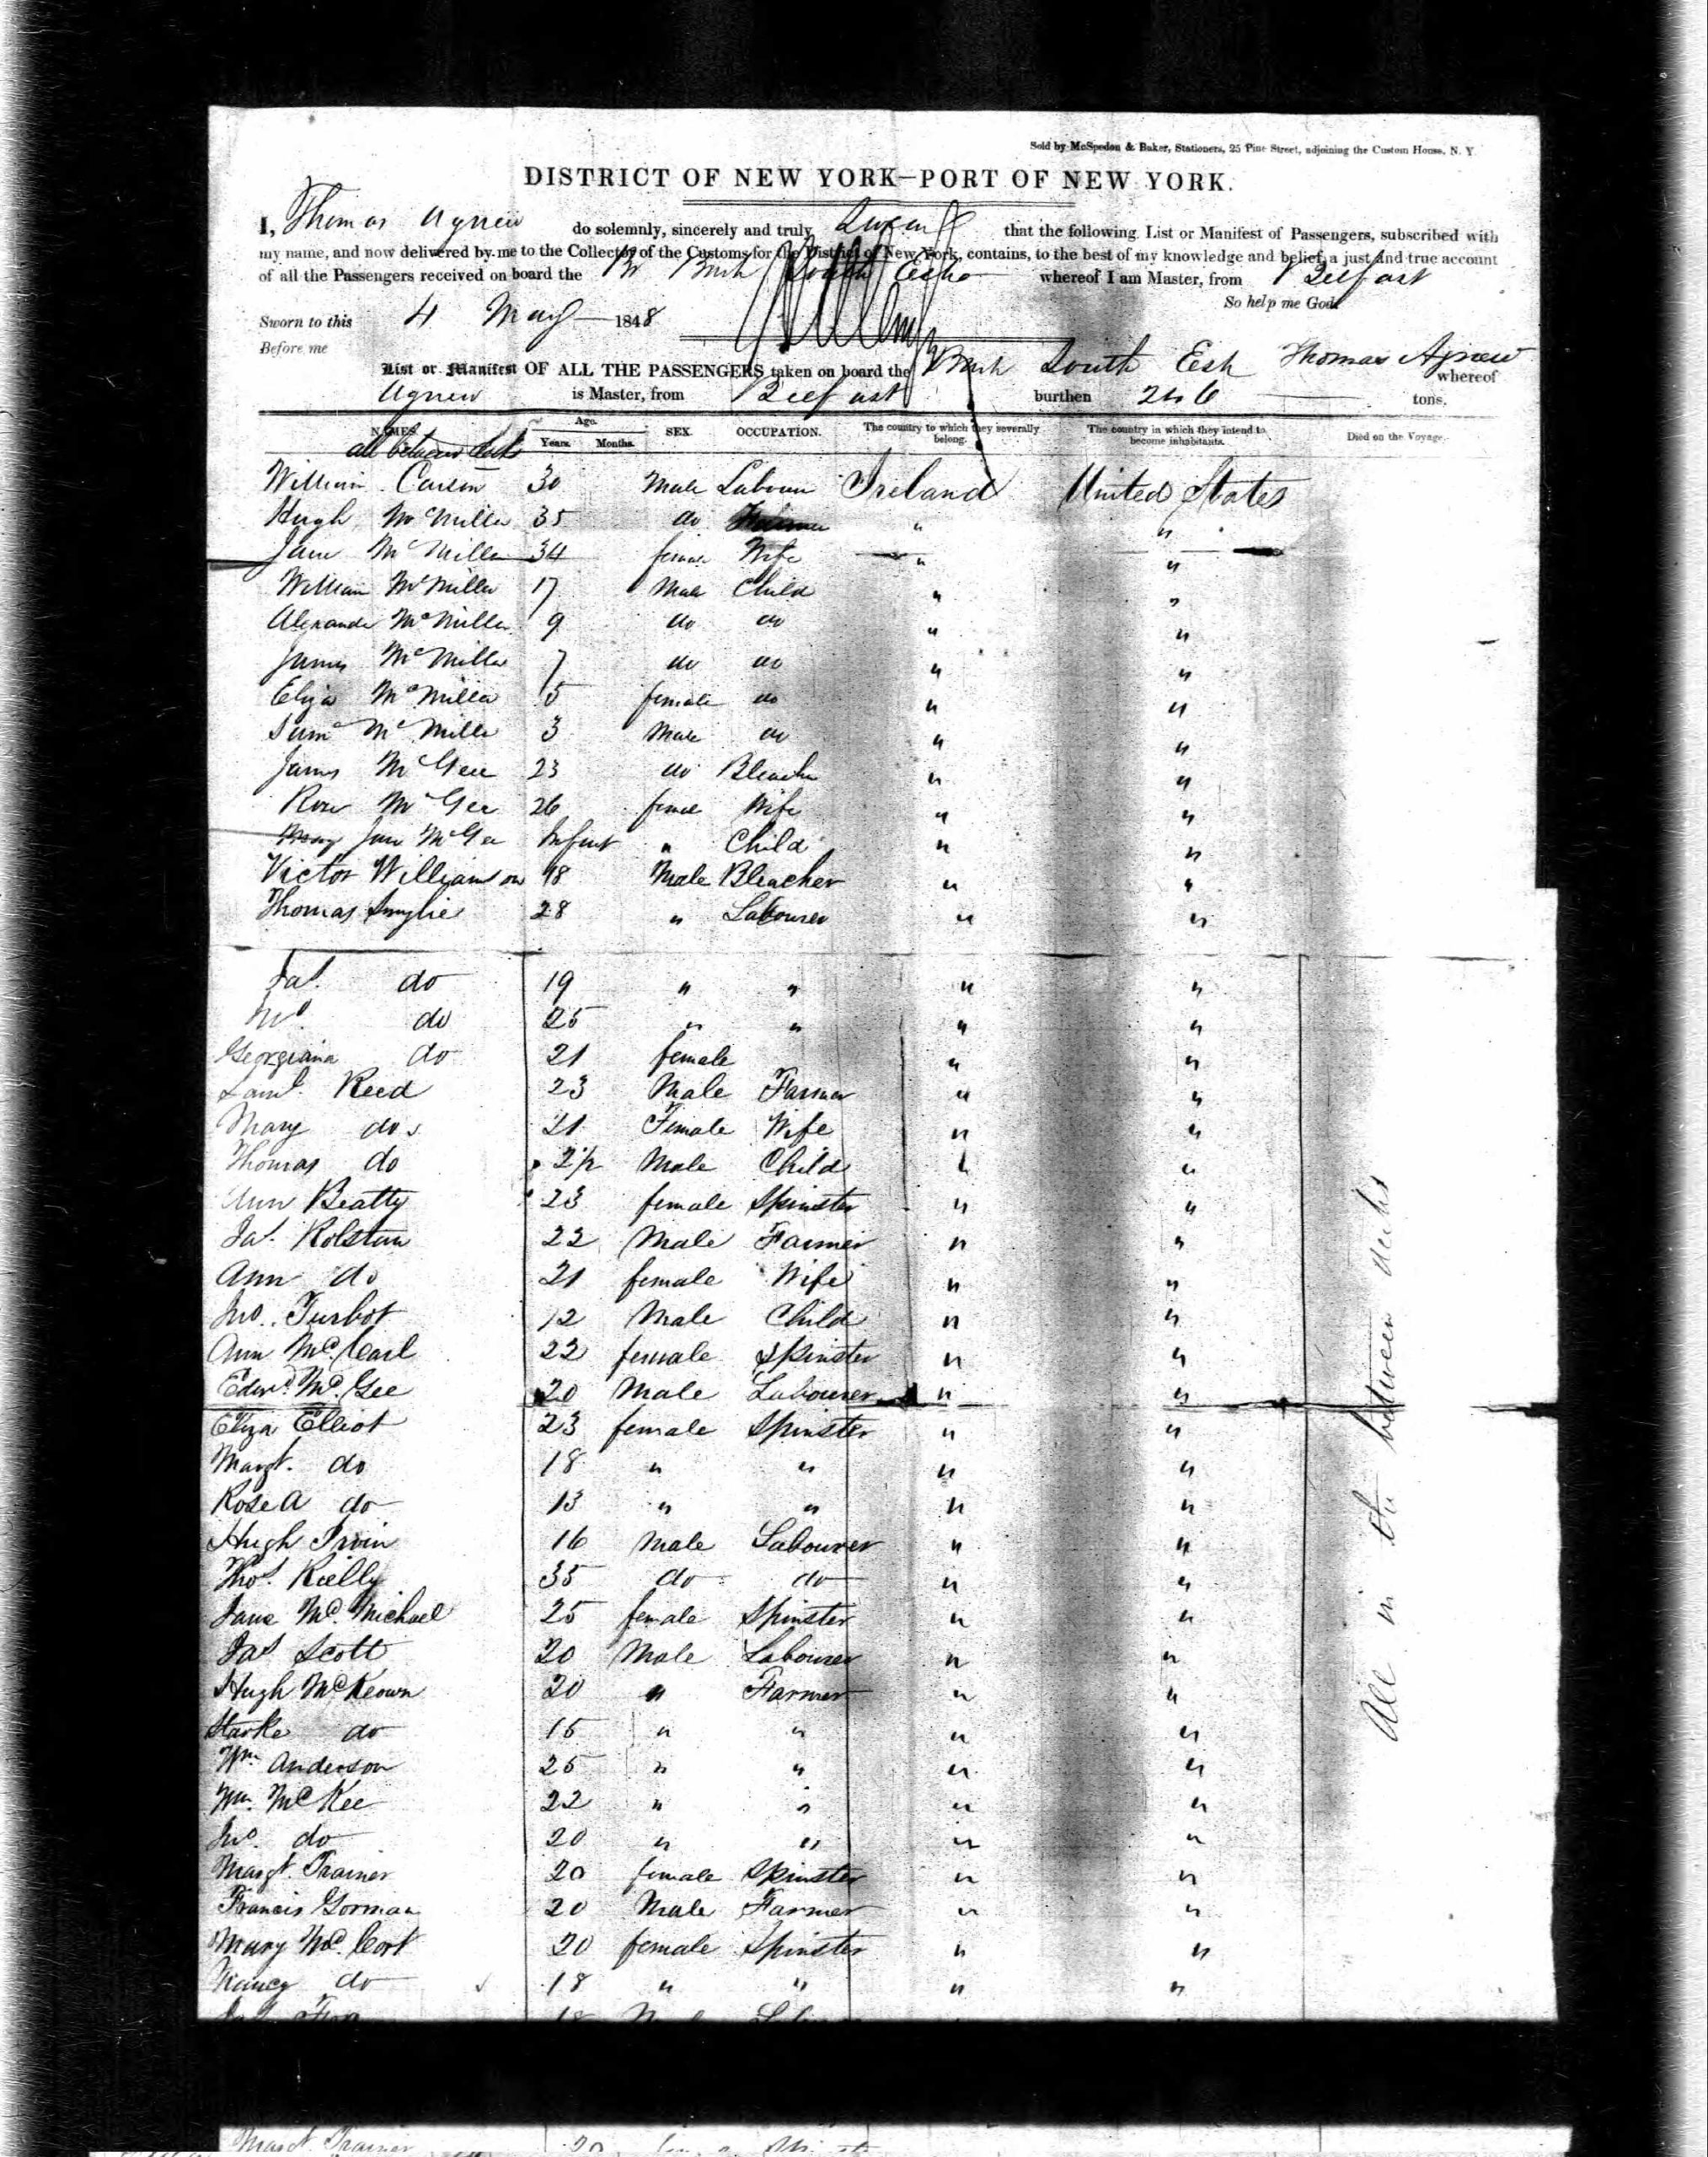 Sold by McSpedon & Baker, Stationers, 25 Pine Street, adjoining the Custom House, N. Y.
DISTRICT OF NEW YORK—PORT OF NEW YORK.
I, Thomas Agnew do solemnly, sincerely and truly swear that the following List or Manifest of Passengers, subscribed with
my name, and now delivered by me to the Collector of the Customs for the District of New York, contains, to the best of my knowledge and belief, a just and true account
of all the Passengers received on board the Br Bark South Eske whereof I am Master, from Belfast
So help me God.
Sworn to this 4 May 1848
Before me
Thomas Agnew
List or Manifest OF ALL THE PASSENGERS taken on board the Bark South Esk whereof
Agnew is Master, from Belfast burthen 246 tons.
NAMES. Age. Years. Months. SEX. OCCUPATION. The country to which they severally belong. The country in which they intend to become inhabitants. Died on the Voyage.
all between decks
William 30 Male Labourer Ireland United States
Hugh McMillen 35 do Farmer " "
Jane McMillen 34 female Wife " "
William McMillen 17 Male Child " "
Alexander McMillen 9 do do " "
James McMillen 7 do do " "
Eliza McMillen 5 female do " "
Saml McMillen 3 Male do " "
James McGee 23 do Bleacher " "
Rose McGee 26 female Wife " "
Mary Jane McGee Infant " Child " "
Victor Williamson 18 Male Bleacher " "
Thomas Smylie 28 " Labourer " "
Jas. do 19 " " " "
do 25 " " " "
Georgiana do 21 female " "
Saml. Reed 23 Male Farmer " "
Mary do 21 Female Wife " "
Thomas do 2½ Male Child " "
Ann Beatty 23 female Spinster " "
Jas. Rolston 22 Male Farmer " "
Ann do 21 female Wife " "
Jno. Turbot 12 Male Child " "
Ann McCarl 22 female Spinster " "
Edwd. McGee 20 Male Labourer " "
Eliza Elliot 23 female Spinster " "
Margt. do 18 " " " "
Rose A do 13 " " " "
Hugh Irvin 16 Male Labourer " "
Thos. Rielly 35 do do " "
Jane McMichael 25 female Spinster " "
Jas Scott 20 Male Labourer " "
Hugh McKeown 20 " Farmer " "
do 15 " " " "
Wm. Anderson 25 " " " "
Wm. McKee 22 " " " "
Jno. do 20 " " " "
Margt. Trainer 20 female Spinster " "
Francis Gorman 20 Male Farmer " "
Mary McCort 20 female Spinster " "
Nancy do 18 " " " "
All in the between decks
Margt. Trainer 20